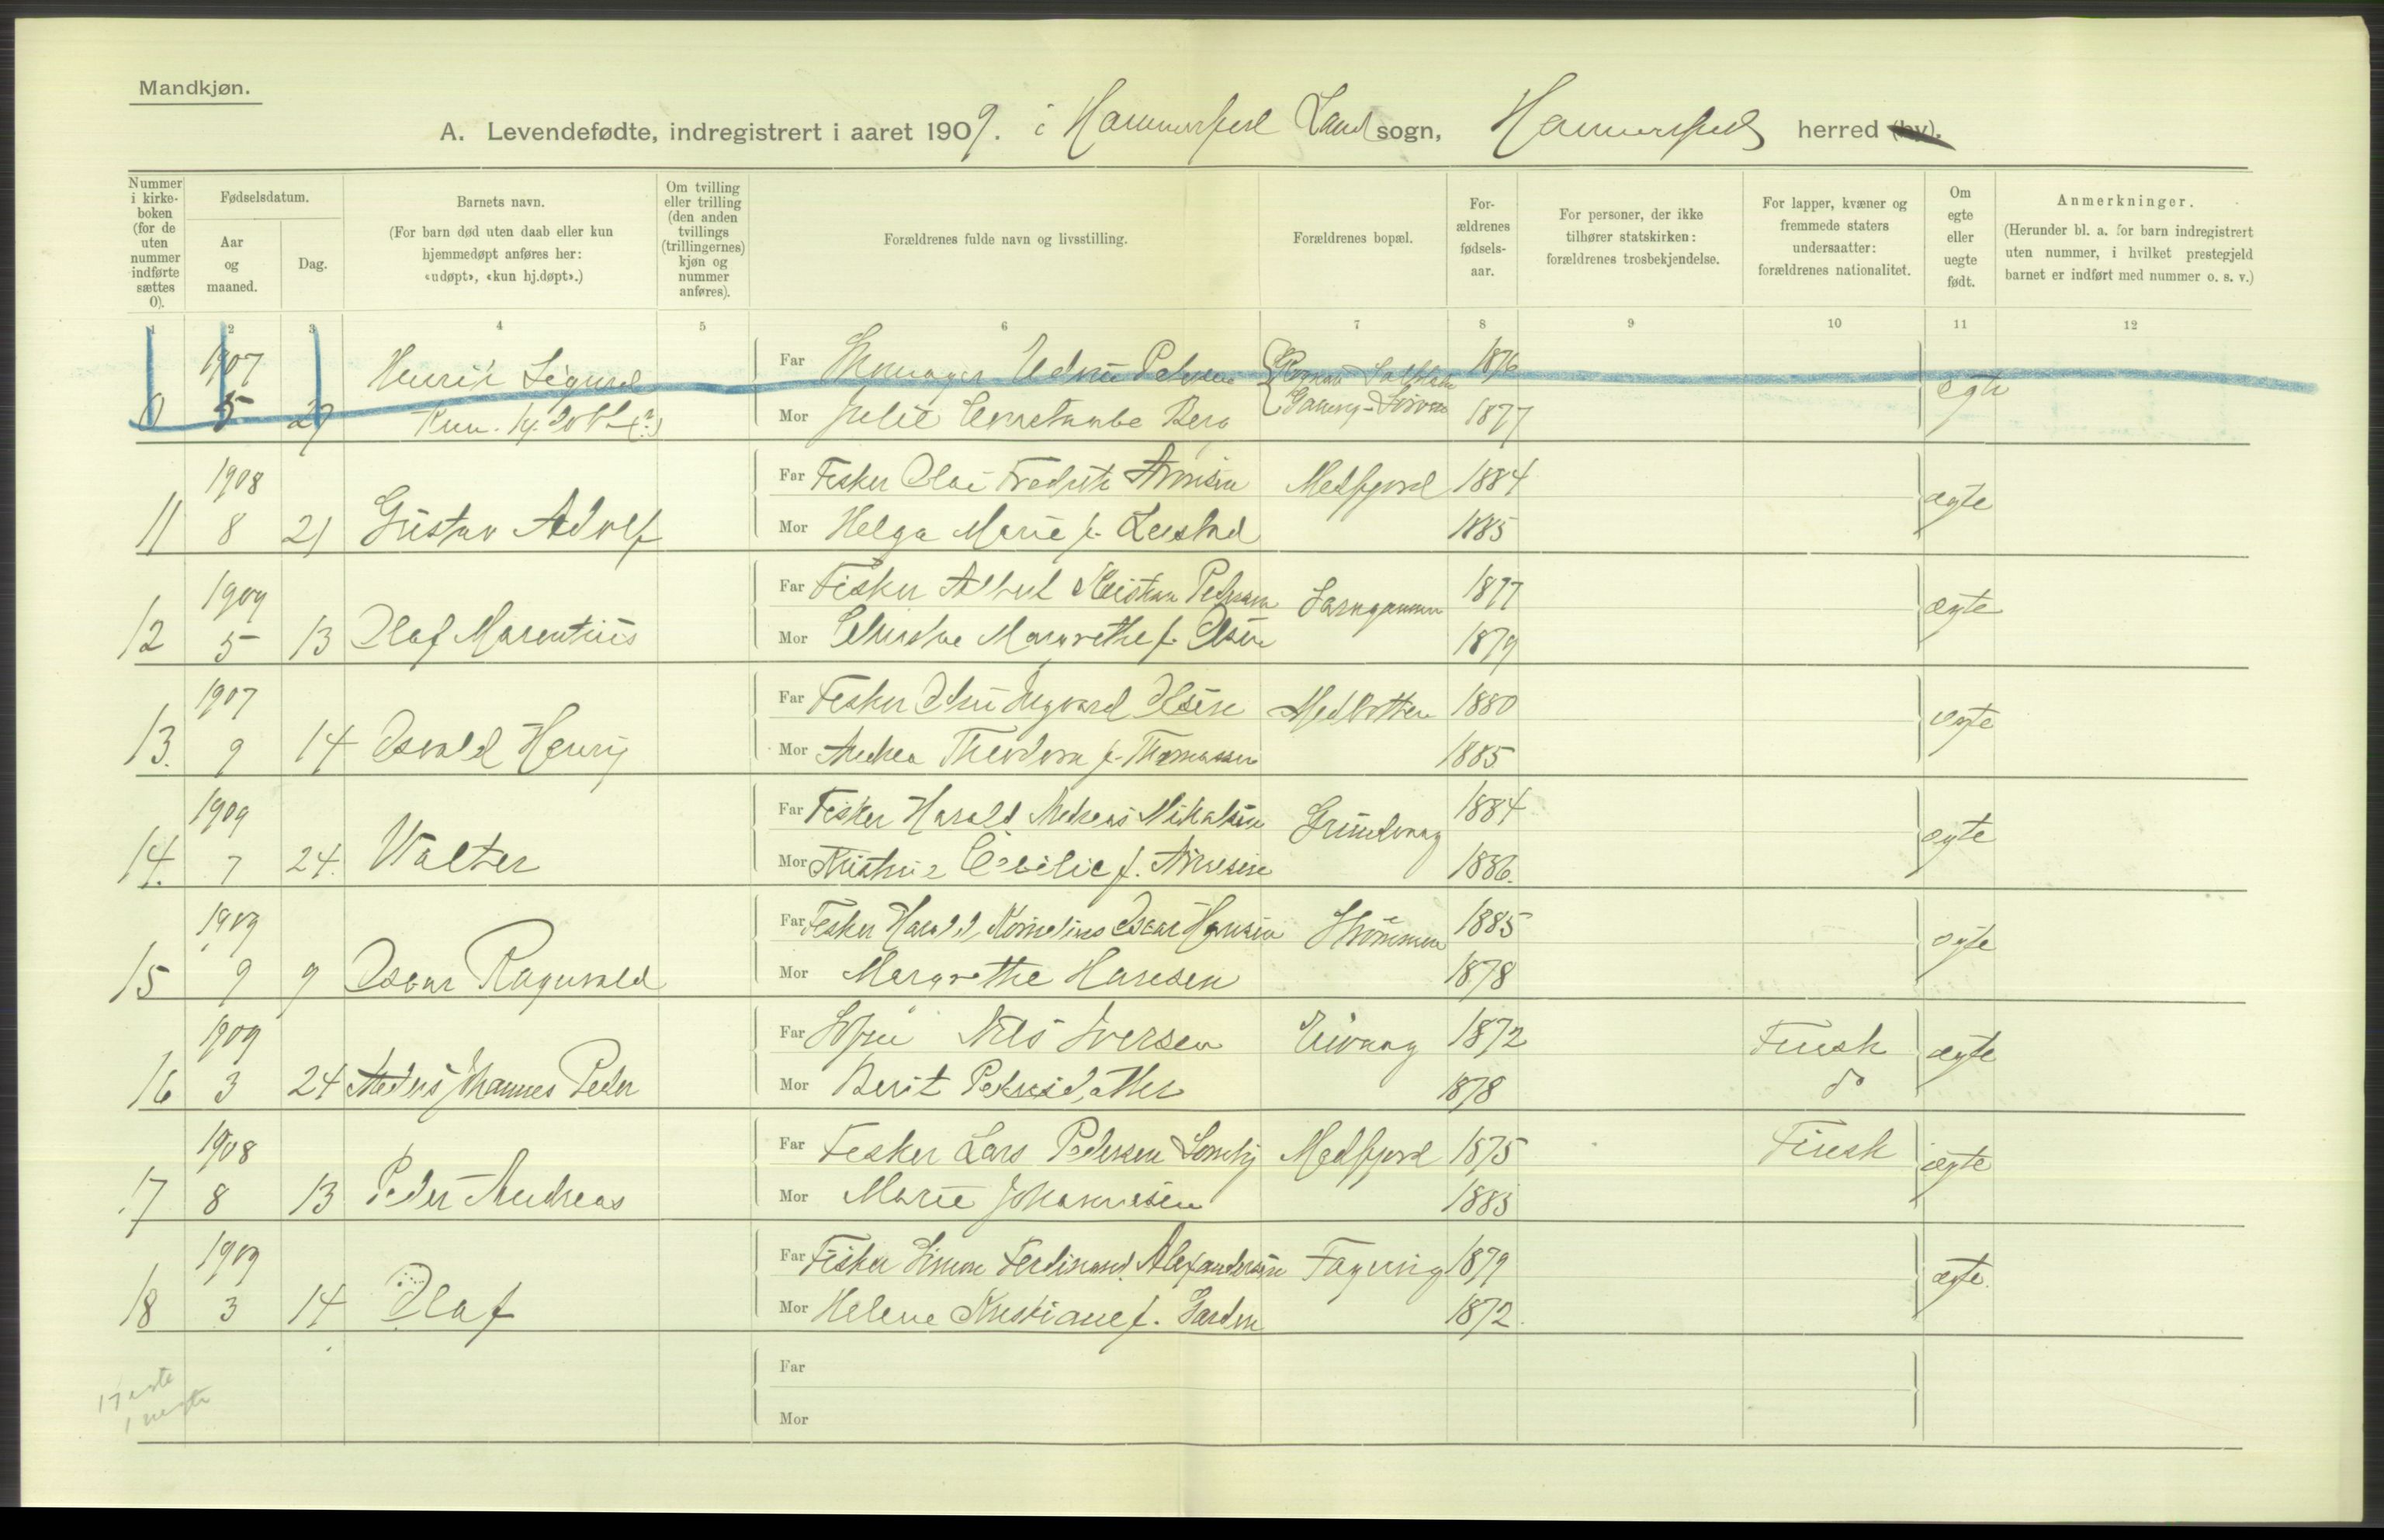 Mandkjøn.
A. Levendefødte, indregistrert i aaret 1909. i Hammerfest Land sogn, Hammerfest herred (by).
Nummer i kirke-boken (for de uten nummer indførte sættes 0).
Fødselsdatum.
Aar og maaned.
Dag.
Barnets navn.
(For barn død uten daab eller kun hjemmedøpt anføres her: «udøpt», «kun hj.døpt».)
Om tvilling eller trilling (den anden tvillings (trillingernes) kjøn og nummer anføres).
Forældrenes fulde navn og livsstilling.
Forældrenes bopæl.
For-ældrenes fødsels-aar.
For personer, der ikke tilhører statskirken: forældrenes trosbekjendelse.
For lapper, kvæner og fremmede staters undersaatter: forældrenes nationalitet.
Om egte eller uegte født.
Anmerkninger.
(Herunder bl. a. for barn indregistrert uten nummer, i hvilket prestegjeld barnet er indført med nummer o. s. v.)
1 2 3 4 5 6 7 8 9 10 11 12
1907 Henrik Sigurd Far Skomager Edvin Pedersen 1876 egte
0 5 27 Kun hj. Mor Julie Berg 1877
1908 Far Fisker Olai Fredrik Arnisen Medfjord 1884 ægte
11 8 21 Gustav Adolf Mor Helga Marie f. Leistad 1885
1909 Far Fisker Albert Kristian Pedersen 1877 ægte
12 5 13 Olaf Marentius Mor Christine Margrethe f. Olsen 1879
1907 Far Fisker Ingvard Olsen Medbotten 1880 egte
13. 9 14 Osvald Henry Mor Andrea Theodora f. Thomassen 1885
1909 Far Fisker Harald Andreas Mikalsen Grundvaag 1884 egte
14. 7 24. Walter Mor Kristine Cecilie f. Arnesen 1886.
1909 Far Fisker Harald Kornelius Oscar Hansen Strömmen 1885 egte
15 9 9 Oscar Ragnvald Mor Margrethe Hansen 1878
1909 Far Nils Iversen 1872 Finsk ægte
16 3 24 Anders Johannes Peder Mor Berit Pedersdatter 1878 do
1908 Far Fisker Lars Pedersen Medfjord 1875 Finsk ægte
17 8 13 Peder Andreas Mor Marie Johannesen 1883
1909 Far Fisker Simon Ferdinand Alexandersen 1879 ægte
18 3 14 Olaf Mor Helene Kristiane f. 1872.
Far
Mor
17 egte
1 uegte